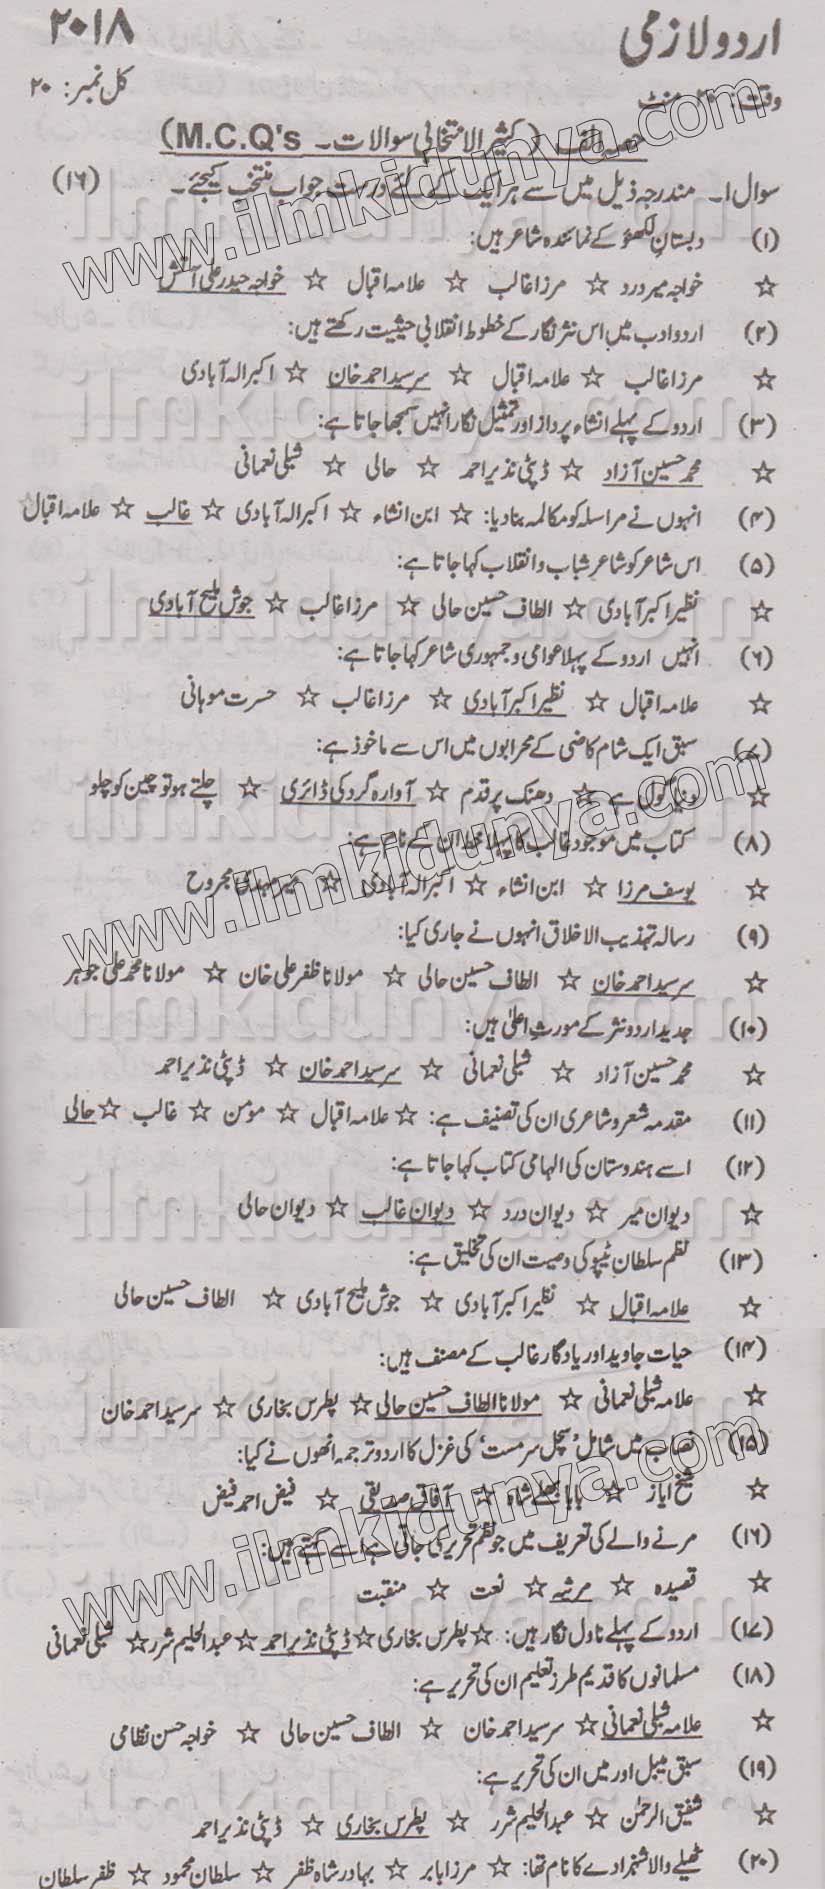 اردو لازمی ۲۰۱۸
وقت: منٹ کل نمبر: ۲۰
حصہ الف (کثیر الانتخابی سوالات۔ M.C.Q's)
سوال ۱۔ مندرجہ ذیل میں سے ہر ایک کے لئے درست جواب منتخب کیجئے۔ (۱۶)
(۱) دبستانِ لکھنؤ کے نمائندہ شاعر ہیں:
☆ خواجہ میر درد ☆ مرزا غالب ☆ علامہ اقبال ☆ خواجہ حیدر علی آتش
(۲) اردو ادب میں اس نثر نگار کے خطوط انقلابی حیثیت رکھتے ہیں:
☆ مرزا غالب ☆ علامہ اقبال ☆ سرسید احمد خان ☆ اکبر الہ آبادی
(۳) اردو کے پہلے انشاء پرداز اور تمثیل نگار انہیں سمجھا جاتا ہے:
☆ محمد حسین آزاد ☆ ڈپٹی نذیر احمد ☆ حالی ☆ شبلی نعمانی
(۴) انہوں نے مراسلہ کو مکالمہ بنا دیا: ☆ ابن انشاء ☆ اکبر الہ آبادی ☆ غالب ☆ علامہ اقبال
(۵) اس شاعر کو شاعرِ شباب و انقلاب کہا جاتا ہے:
☆ نظیر اکبر آبادی ☆ الطاف حسین حالی ☆ مرزا غالب ☆ جوش ملیح آبادی
(۶) انہیں اردو کے پہلا عوامی و جمہوری شاعر کہا جاتا ہے:
☆ علامہ اقبال ☆ نظیر اکبر آبادی ☆ مرزا غالب ☆ حسرت موہانی
(۷) سبق ایک شام کاضی کے محرابوں میں اس سے ماخوذ ہے:
☆ دنیا گول ہے ☆ دھنک پر قدم ☆ آوارہ گرد کی ڈائری ☆ چلتے ہو تو چین کو چلو
(۸) کتاب میں موجود غالب کا پہلا خط ان کے نام ہے:
☆ یوسف مرزا ☆ ابن انشاء ☆ اکبر الہ آبادی ☆ میر مہدی مجروح
(۹) رسالہ تہذیب الاخلاق انہوں نے جاری کیا:
☆ سرسید احمد خان ☆ الطاف حسین حالی ☆ مولانا ظفر علی خان ☆ مولانا محمد علی جوہر
(۱۰) جدید اردو نثر کے مورثِ اعلیٰ ہیں:
☆ محمد حسین آزاد ☆ شبلی نعمانی ☆ سرسید احمد خان ☆ ڈپٹی نذیر احمد
(۱۱) مقدمہ شعر و شاعری ان کی تصنیف ہے: ☆ علامہ اقبال ☆ مومن ☆ غالب ☆ حالی
(۱۲) اسے ہندوستان کی الہامی کتاب کہا جاتا ہے:
☆ دیوان میر ☆ دیوان درد ☆ دیوان غالب ☆ دیوان حالی
(۱۳) نظم سلطان ٹیپو کی وصیت ان کی تخلیق ہے:
☆ علامہ اقبال ☆ نظیر اکبر آبادی ☆ جوش ملیح آبادی ☆ الطاف حسین حالی
(۱۴) حیات جاوید اور یادگار غالب کے مصنف ہیں:
☆ علامہ شبلی نعمانی ☆ مولانا الطاف حسین حالی ☆ پطرس بخاری ☆ سرسید احمد خان
(۱۵) نصاب میں شامل 'سچل سرمست' کی غزل کا اردو ترجمہ انھوں نے کیا:
☆ شیخ ایاز ☆ بابا بلھے شاہ ☆ آفاق صدیقی ☆ فیض احمد فیض
(۱۶) مرنے والے کی تعریف میں جو نظم تحریر کی جاتی ہے اسے کہتے ہیں:
☆ قصیدہ ☆ مرثیہ ☆ نعت ☆ منقبت
(۱۷) اردو کے پہلے ناول نگار ہیں: ☆ پطرس بخاری ☆ ڈپٹی نذیر احمد ☆ عبدالحلیم شرر ☆ شبلی نعمانی
(۱۸) مسلمانوں کا قدیم طرز تعلیم ان کی تحریر ہے:
☆ علامہ شبلی نعمانی ☆ سرسید احمد خان ☆ الطاف حسین حالی ☆ خواجہ حسن نظامی
(۱۹) سبق میبل اور میں ان کی تحریر ہے:
☆ شفیق الرحمٰن ☆ عبدالحلیم شرر ☆ پطرس بخاری ☆ ڈپٹی نذیر احمد
(۲۰) ٹھیلے والا شہزادے کا نام تھا: ☆ مرزا بابر ☆ بہادر شاہ ظفر ☆ سلطان محمود ☆ ظفر سلطان
www.ilmkidunya.com
www.ilmkidunya.com
www.ilmkidunya.com
ilmkidunya.com